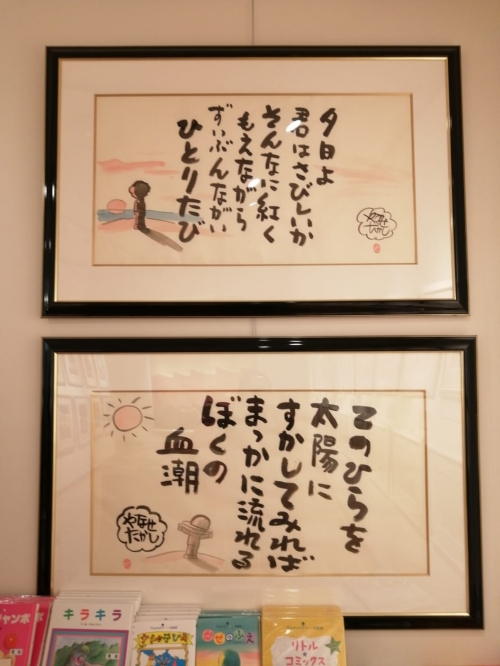 夕日よ
君はさびしいか
そんなに紅く
もえながら
ずいぶんながい
ひとりたび
やなせ
たかし
てのひらを
太陽に
すかしてみれば
まっかに流れる
ぼくの
血潮
やなせ
たかし
ジャンボ
キラキラ
リトル
コミックス